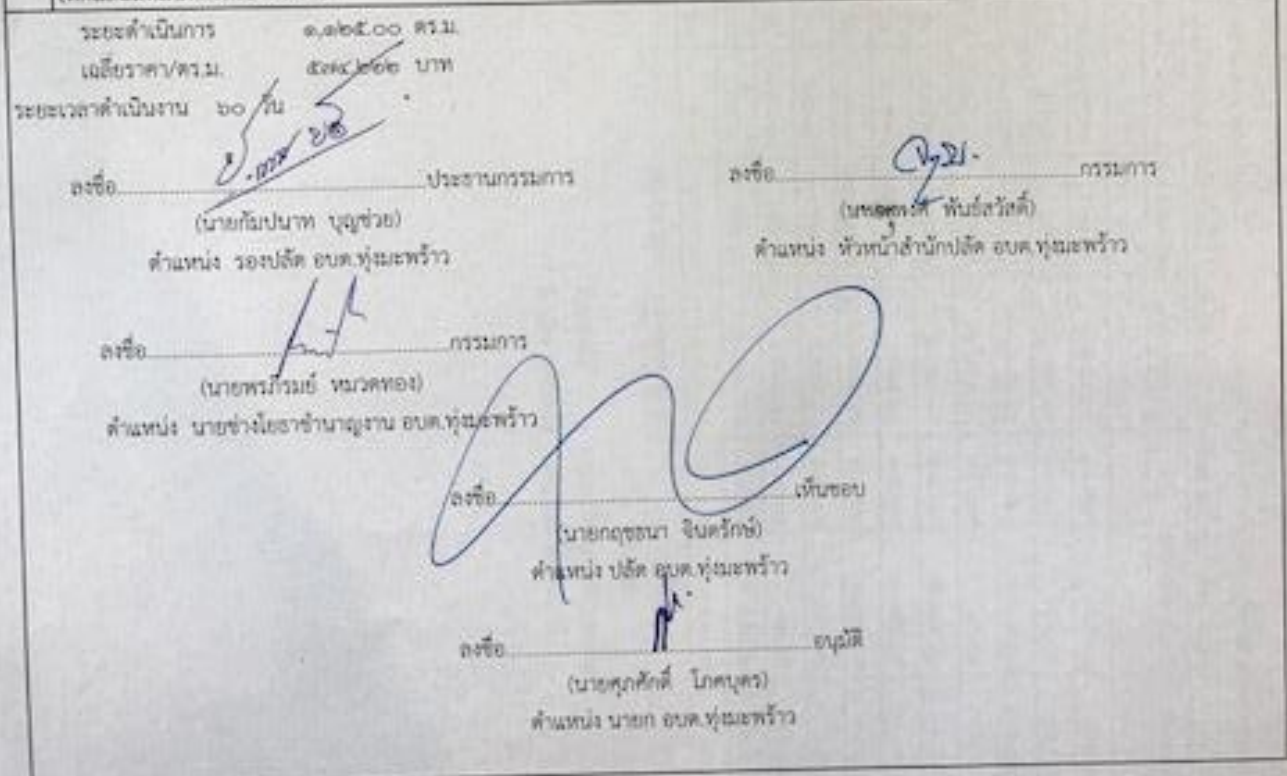 ระยะดำเนินการ ๑,๑๒๕.๐๐ ตร.ม.
เฉลี่ยราคา/ตร.ม. บาท
ระยะเวลาดำเนินงาน ๖๐ วัน
ลงชื่อ ประธานกรรมการ
(นายกัมปนาท บุญช่วย)
ตำแหน่ง รองปลัด อบต.ทุ่งมะพร้าว
ลงชื่อ กรรมการ
พันธ์สวัสดิ์)
ตำแหน่ง หัวหน้าสำนักปลัด อบต.ทุ่งมะพร้าว
ลงชื่อ กรรมการ
(นายพรภิรมย์ หมวดทอง)
ตำแหน่ง นายช่างโยธาชำนาญงาน อบต.ทุ่งมะพร้าว
ลงชื่อ เห็นชอบ
(นายกฤชธนา จินดรักษ์)
ตำแหน่ง ปลัด อบต.ทุ่งมะพร้าว
ลงชื่อ อนุมัติ
(นายศุภศักดิ์ โภคบุตร)
ตำแหน่ง นายก อบต.ทุ่งมะพร้าว